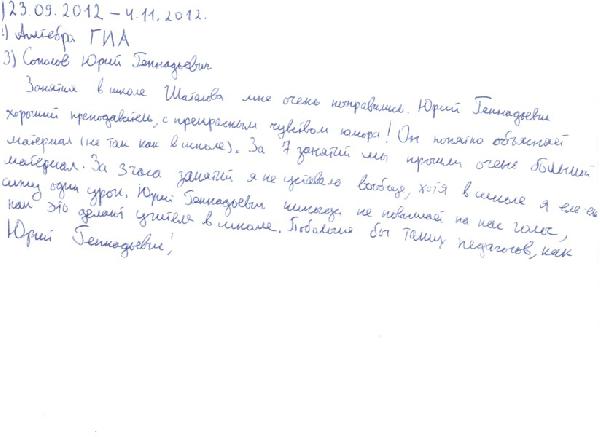 1) 23.09.2012 – 4.11.2012.
2) Алгебра ГИА
3) Соколов Юрий Геннадьевич
Занятия в школе Шаталова мне очень понравились. Юрий Геннадьевич
хороший преподаватель, с прекрасным чувством юмора! Он понятно объясняет
материал (не так как в школе). За 7 занятий мы прошли очень большой
материал. За 3 часа занятий я не уставала вообще, хотя в школе я еле-еле
сижу один урок. Юрий Геннадьевич никогда не повышает на нас голос,
как это делают учителя в школе. Побольше бы таких педагогов, как
Юрий Геннадьевич!